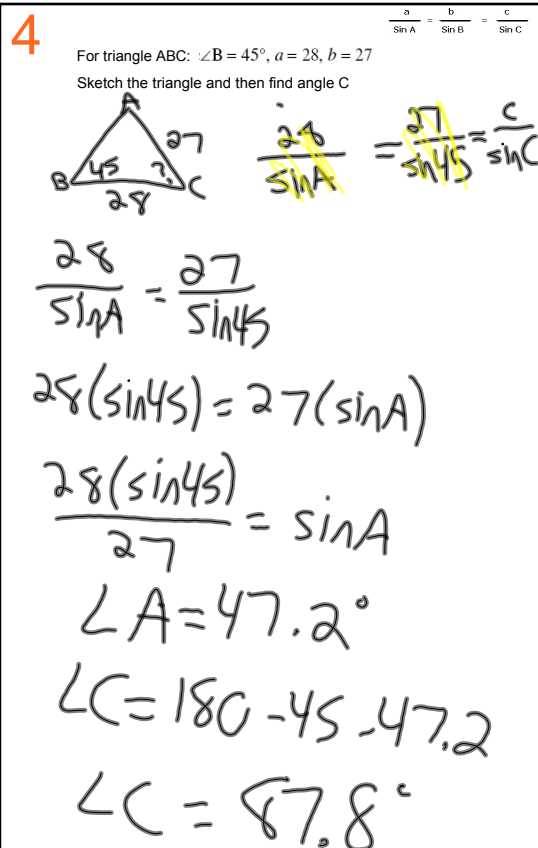 a/Sin A = b/Sin B = c/Sin C
4
For triangle ABC: ∠B = 45°, a = 28, b = 27
Sketch the triangle and then find angle C
A
27
B 45 ? C
28
28/sinA = 27/sin45 = c/sinC
28/sinA = 27/sin45
28(sin45) = 27(sinA)
28(sin45)/27 = sinA
∠A = 47.2°
∠C = 180 - 45 - 47.2
∠C = 87.8°